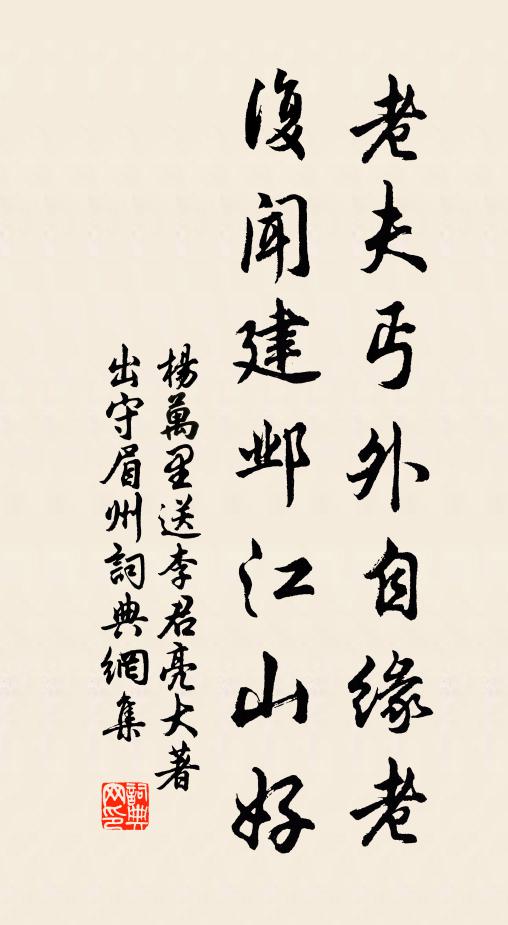 老夫丐外自缘老
復聞建邺江山好
楊萬里送李君亮大著
出守眉州詞典網集
詞典网印